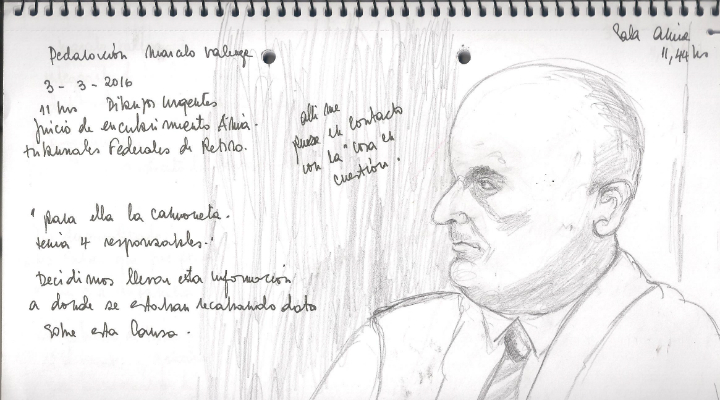 Declaración Marcelo
Sala Amia
11,44 hs
3 - 3 - 2016
11 hs Dibujos Urgentes
Juicio de encubrimiento Amia.
tribunales Federales de Retiro.
alli me
puse en contacto
con la "cosa en
cuestión".
"para ella la camioneta.
tenía 4 responsables."
Decidimos llevar esta información
a donde se estaban recabando dato
sobre esta Causa.